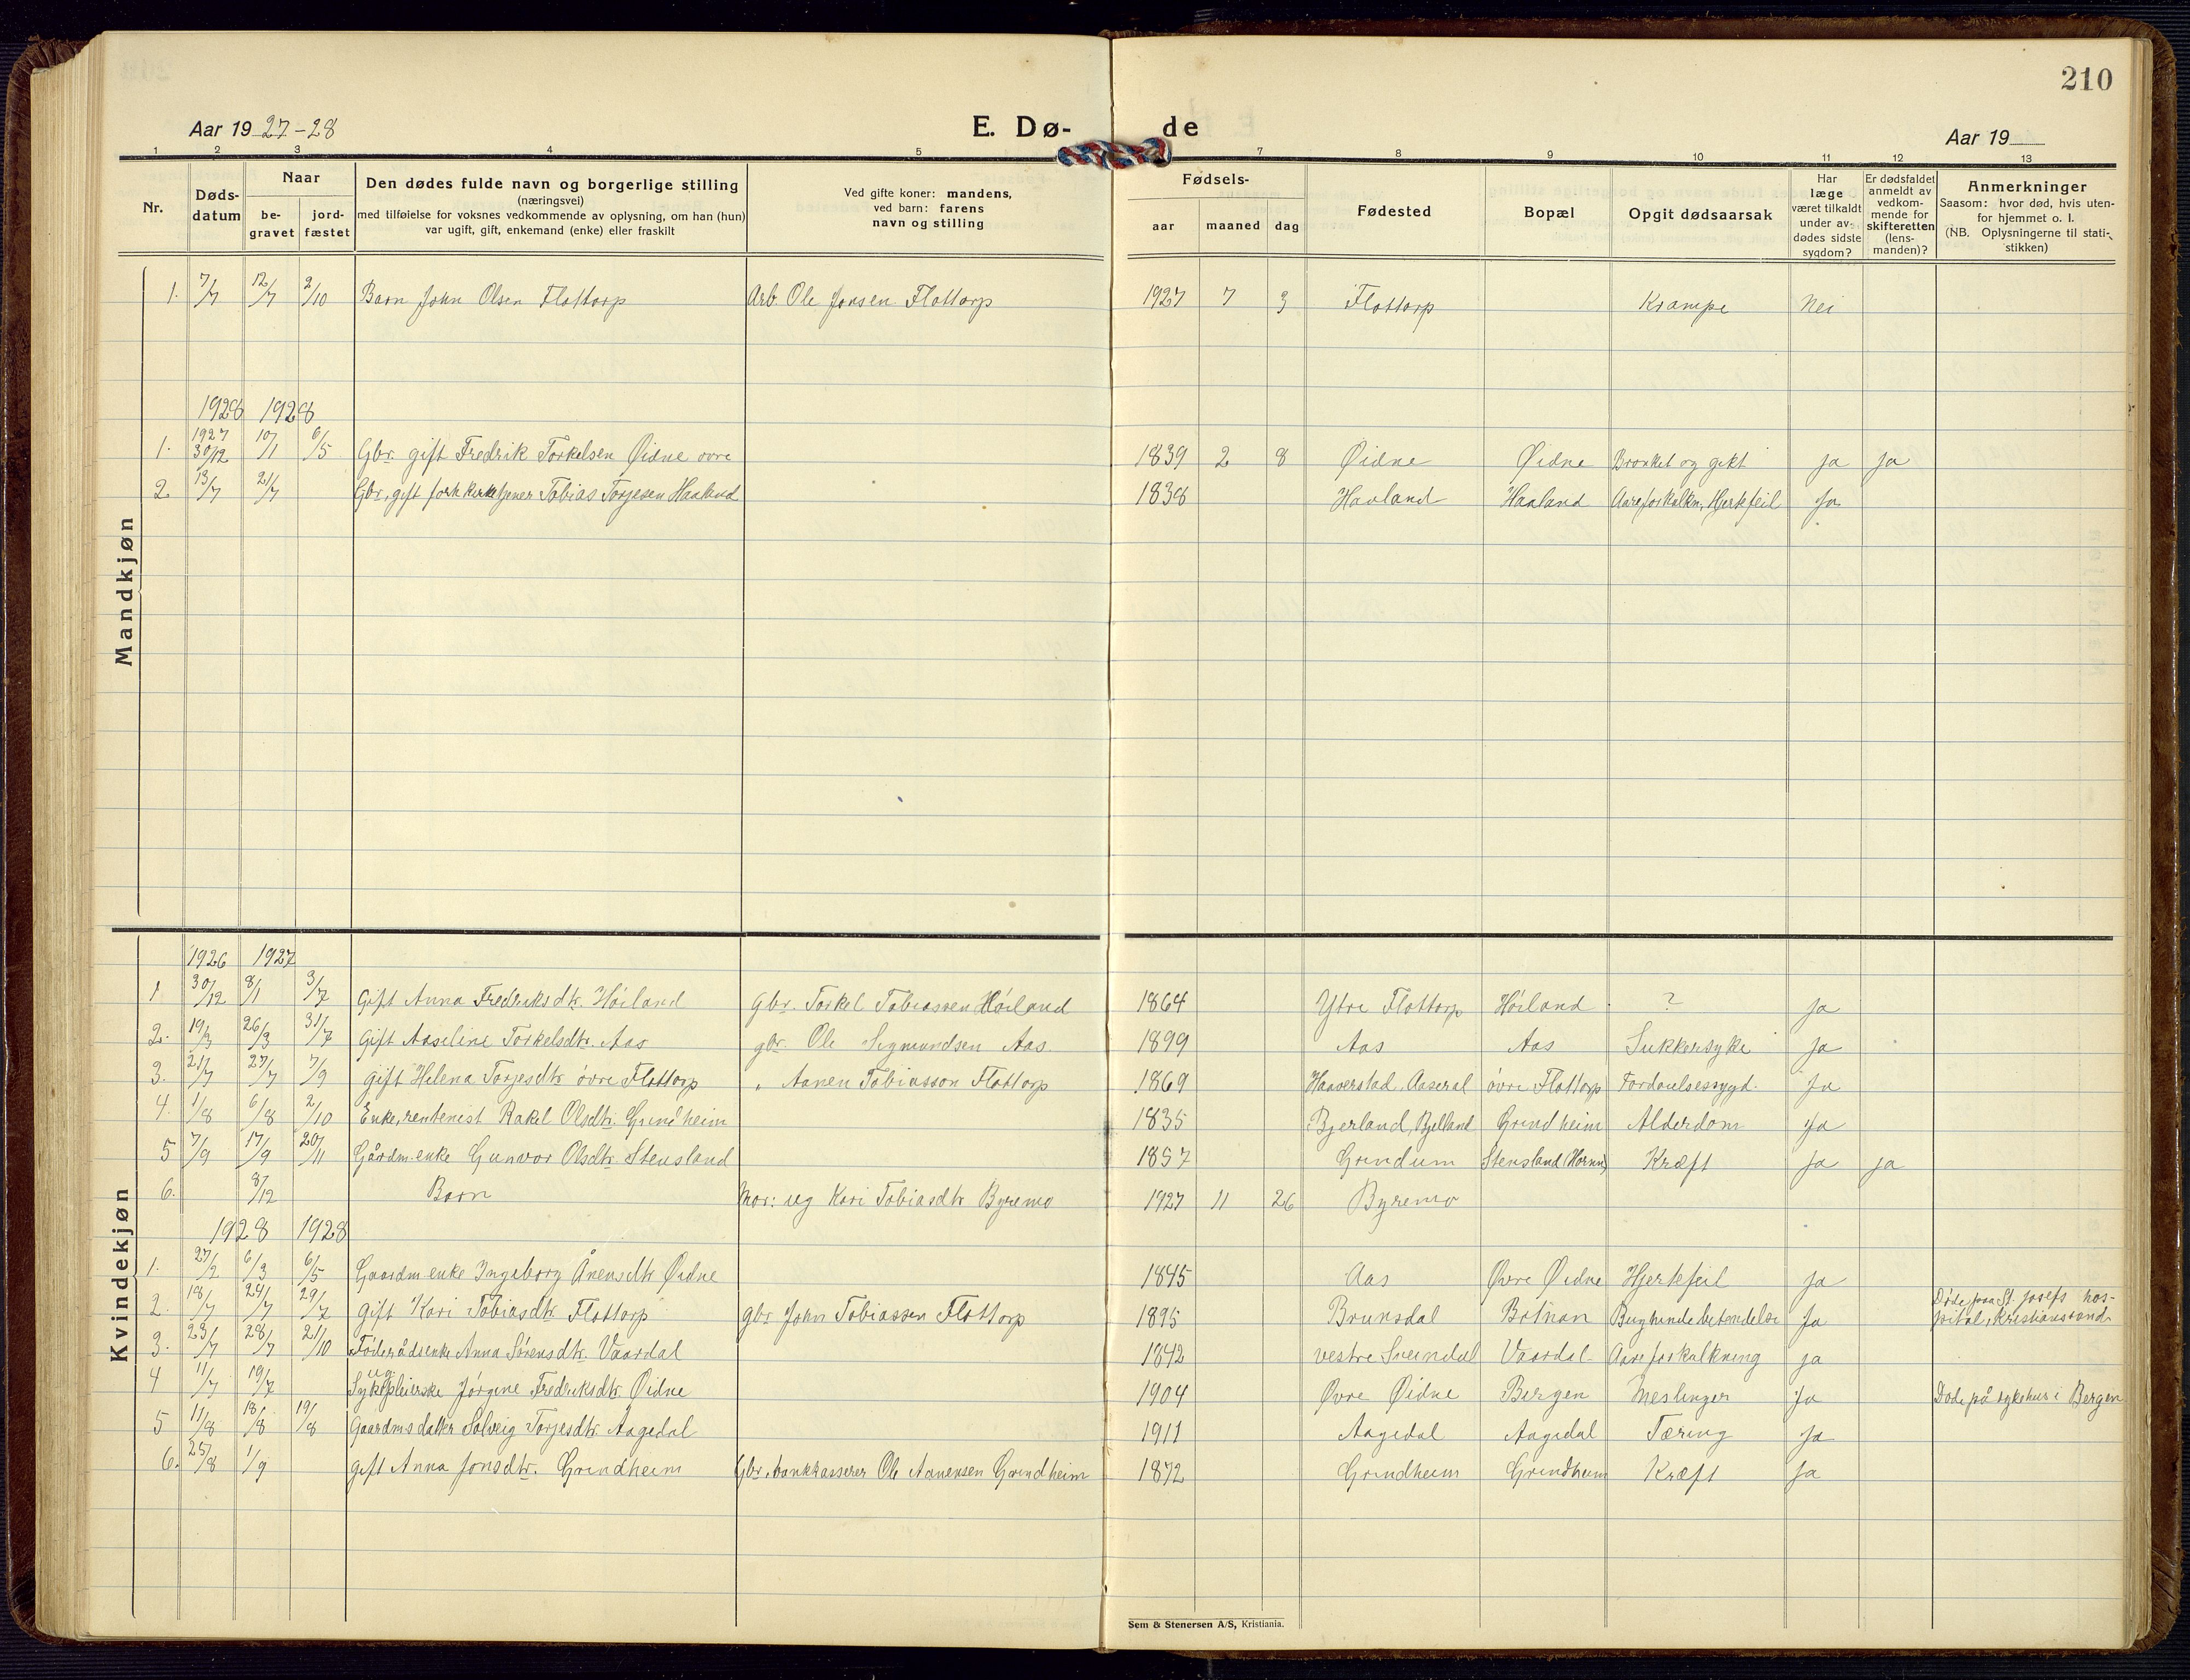 210
Aar 1927-28 E. Dø- de Aar 19
1 2 3 4 5 7 8 9 10 11 12 13
Nr.
Døds-
datum
Naar
be-
gravet
jord-
fæstet
Den dødes fulde navn og borgerlige stilling
(næringsvei)
med tilføielse for voksnes vedkommende av oplysning, om han (hun)
var ugift, gift, enkemand (enke) eller fraskilt
Ved gifte koner: mandens,
ved barn: farens
navn og stilling
Fødsels-
aar maaned dag
Fødested
Bopæl
Opgit dødsaarsak
Har
læge
været tilkaldt
under av-
dødes sidste
sygdom?
Er dødsfaldet
anmeldt av
vedkom-
mende for
skifteretten
(lens-
manden)?
Anmerkninger
Saasom: hvor død, hvis uten-
for hjemmet o. l.
(NB. Oplysningerne til stati-
stikken)
Mandkjøn
1. 7/7 12/7 2/10 Barn John Olsen Flottorp Arb. Ole Jonsen Flottorp 1927 7 3 Flottorp Krampe Nei
1928 1928
1. 1927 30/12 10/1 6/5 Gbr. gift Fredrik Torkelsen Øidne ovre 1839 2 8 Øidne Øidne Bronket og gikt ja ja
2. 13/7 21/7 Gbr., gift forh kirketjener Tobias Torjesen Haaland 1838 Haaland Haaland Aareforkalkn, Hjerkfeil Ja
Kvindekjøn
1926 1927
1 30/12 8/1 3/7 Gift Anna Fredriksdtr. Höiland Gbr. Torkel Tobiassen Höiland 1864 Ytre Flottorp Höiland ? ja
2. 19/3 26/3 31/7 Gift Aaseline Torkelsdtr. Aas gbr. Ole Sigmundsen Aas 1899 Aas Aas Sukkersyke ja
3. 21/7 27/7 7/9 Gift Helena Torjesdtr övre Flottorp " Aanen Tobiasson Flottorp 1869 Haaverstad, Aaseral övre Flottorp Fordoielsessygd. Ja
4. 1/8 6/8 2/10 Enke, rentenist Rakel Olsdtr. Grindheim 1835 Bjerland, Bjelland Grindheim Alderdom Ja
5 7/9 17/9 20/11 Gårdm.enke Gunvor Olsdtr Stensland 1857 Grindum Stensland (Hornn) Kræft Ja ja
6. 8/12 Barn Mor: ug Kari Tobiasdtr Byremo 1927 11 26 Byremo
1928 1928
1. 27/2 6/3 6/5 Gaardm.enke Ingeborg Ånensdtr Øidne 1845 Aas Øvre Øidne Hjertefeil ja
2. 18/7 24/7 29/7 Gift Kari Tobiasdtr Flottorp gbr John Tobiassen Flottorp 1895 Brunsdal Botnan Bughindebetændelse Ja Döde paa St. Josefs hos-
pital, Kristianssand
3. 23/7 28/7 21/10 Föderådsenke Anna Sörensdtr. Vaardal 1842 vestre Sveindal Vaardal Aareforkalkning ja
4 11/7 19/7 ug Sykepleierske Jörgine Fredriksdtr Øidne 1904 Øvre Øidne Bergen Meslinger Ja Döde på sykehus i Bergen
5 11/8 18/8 19/8 Gaardmsdatter Solveig Torjesdtr. Aagedal 1911 Aagedal Aagedal Tæring Ja
6. 25/8 1/9 gift Anna Jonsdtr. Grindheim Gbr, bankkasserer Ole Aanensen Grindheim 1872 Grindheim Grindheim Kræft Ja
Sem & Stenersen A/S, Kristiania.